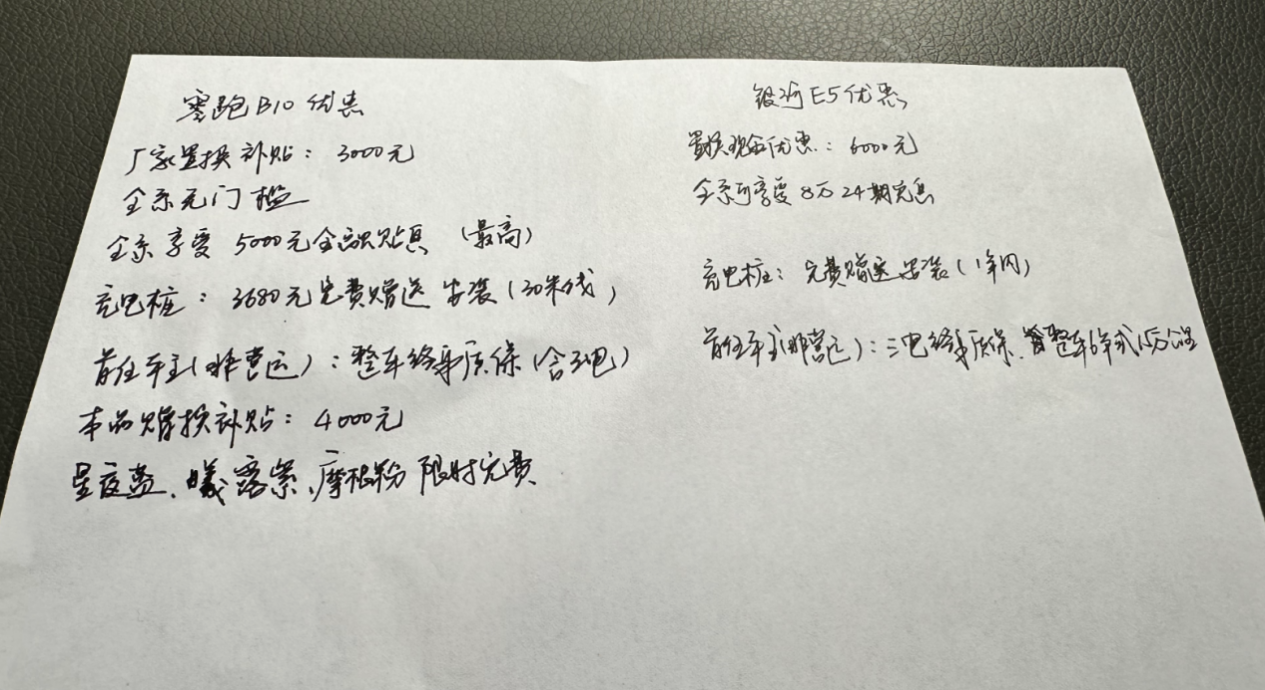 零跑B10优惠
厂家置换补贴：3000元
全系无门槛
全系享受 5000元金融贴息（最高）
充电桩：3680元免费赠送 安装（30米线）
首任车主（非营运）：整车终身质保（含三电）
本品增换补贴：4000元
星夜蓝、曦露紫、摩根粉 限时免费
银河E5优惠
置换现金优惠：6000元
全系可享受 8万 24期免息
充电桩：免费赠送安装（1年内）
首任车主（非营运）：三电终身质保、整车6年或15万公里